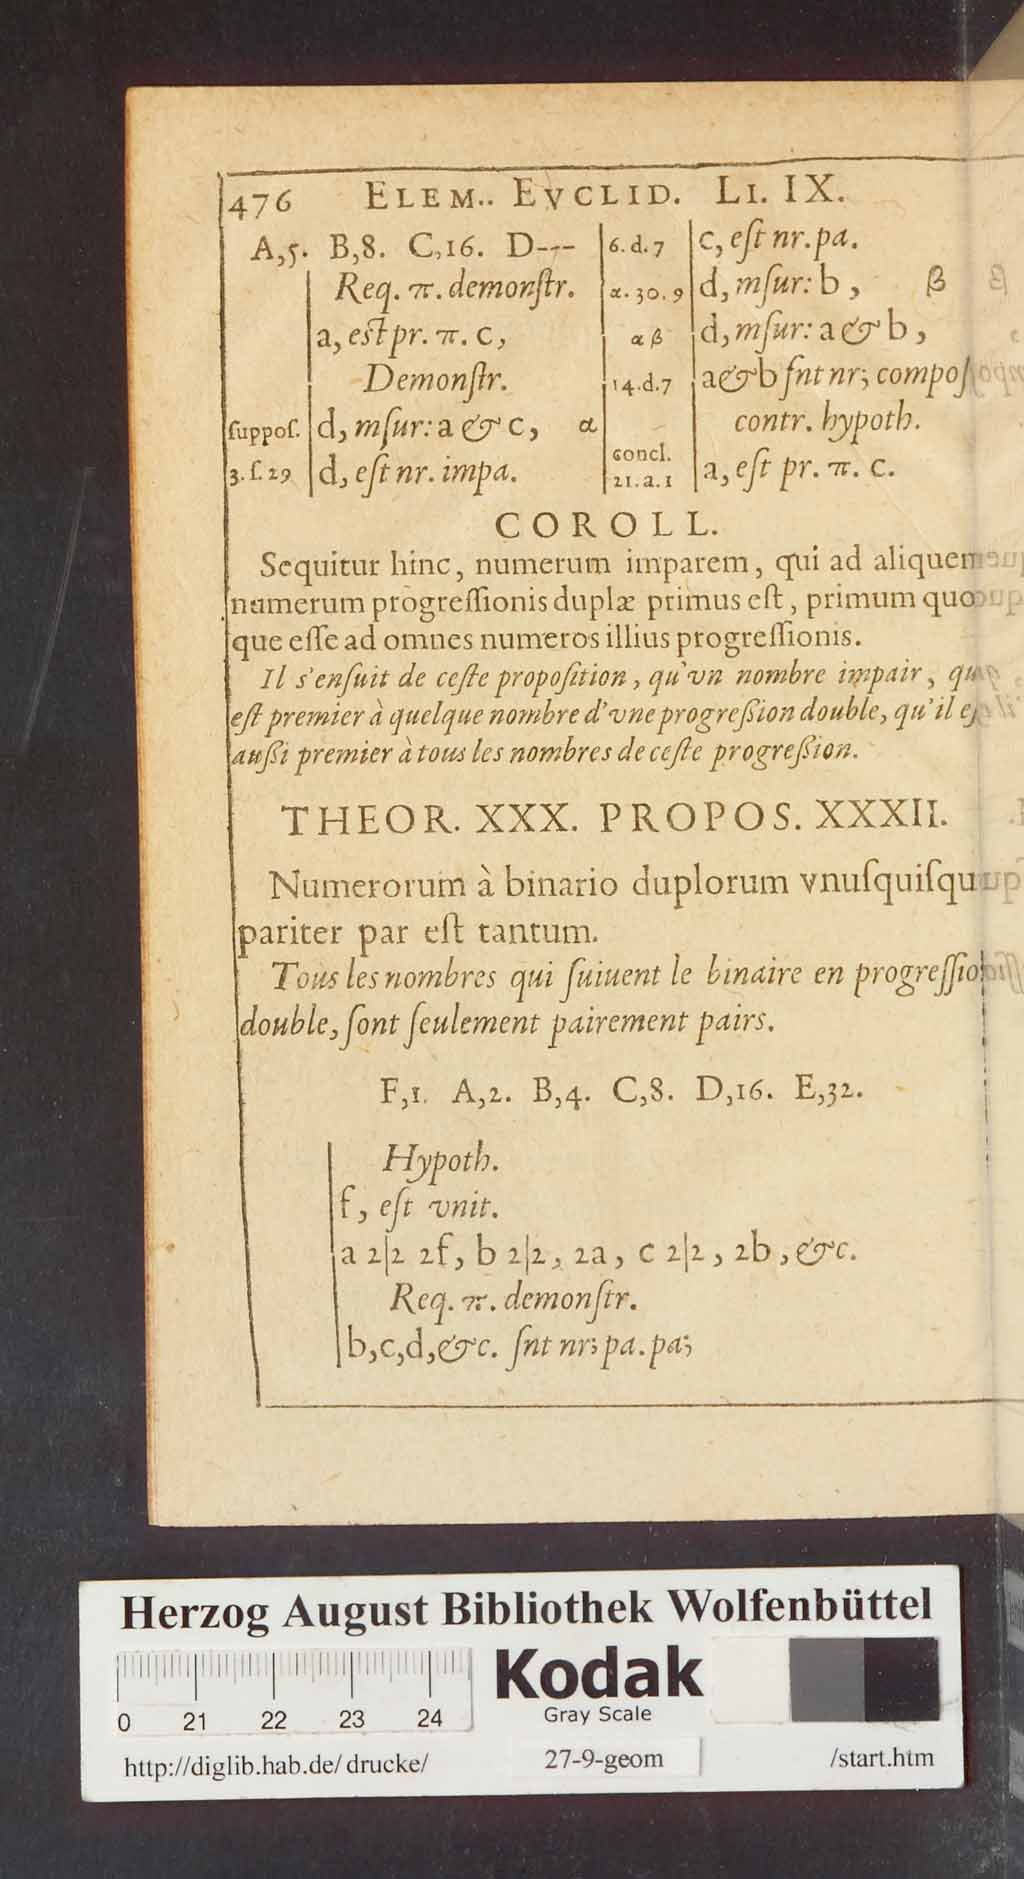 476 ELEM.. EVCLID. LI. IX.
A,5. B,8. C,16. D---
Req. π. demonſtr.
a, eſt pr. π. c,
Demonſtr.
ſuppoſ. d, mſur: a & c, α
3. ſ. 29 d, eſt nr. impa.
6. d. 7 c, eſt nr. pa.
α. 30. 9 d, mſur: b, β
α β d, mſur: a & b,
14. d. 7 a & b ſnt nr; compoſ
contr. hypoth.
concl.
21. a. 1 a, eſt pr. π. c.
COROLL.
Sequitur hinc, numerum imparem, qui ad aliquem
numerum progreſſionis duplæ primus eſt, primum quo
que eſſe ad omnes numeros illius progreſſionis.
Il s'enſuit de ceſte propoſition, qu'vn nombre impair, qui
eſt premier à quelque nombre d'vne progreſſion double, qu'il eſ
auſſi premier à tous les nombres de ceſte progreſſion.
THEOR. XXX. PROPOS. XXXII.
Numerorum à binario duplorum vnuſquiſqu
pariter par eſt tantum.
Tous les nombres qui ſuiuent le binaire en progreſſio
double, ſont ſeulement pairement pairs.
F,1. A,2. B,4. C,8. D,16. E,32.
Hypoth.
f, eſt vnit.
a 2|2 2f, b 2|2, 2a, c 2|2, 2b, &c.
Req. π. demonſtr.
b,c,d,&c. ſnt nr; pa. pa;
Herzog August Bibliothek Wolfenbüttel
0 21 22 23 24
Kodak
Gray Scale
http://diglib.hab.de/drucke/ 27-9-geom /start.htm